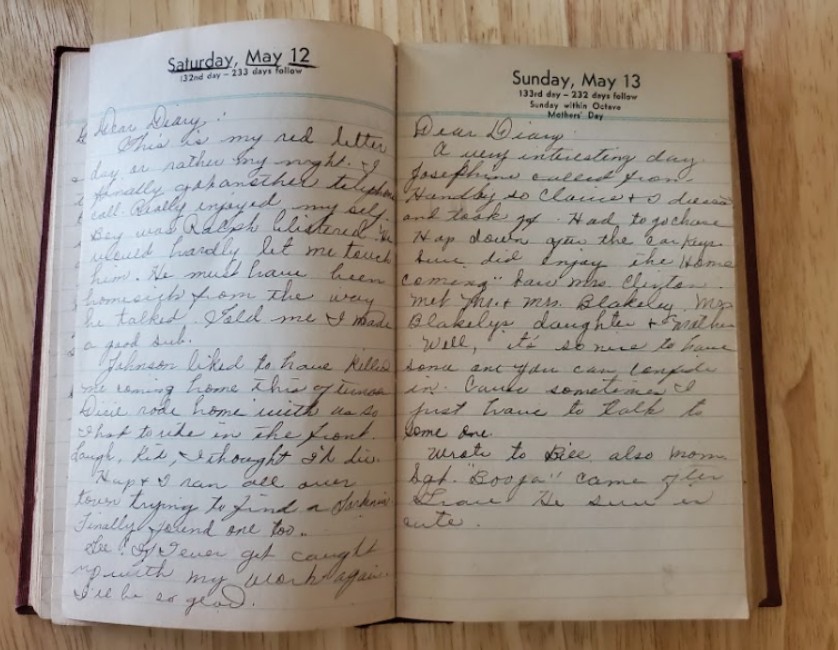 Saturday, May 12
132nd day – 233 days follow
Dear Diary:
This is my red letter
day or rather my night. I
finally got another telephone
call. Really enjoyed my self.
Boy was Ralph blistered. He
would hardly let me touch
him. He must have been
homesick from the way
he talked. Told me I made
a good sub.
Johnson liked to have killed
me coming home this afternoon
Dixie rode home with us so
I had to ride in the front.
Laugh, kid, I thought I'd die.
Hap & I ran all over
town trying to find a Gardenia
Finally found one too.
Gee! If I ever get caught
up with my work again
I'll be so glad.
Sunday, May 13
133rd day – 232 days follow
Sunday within Octave
Mothers' Day
Dear Diary:
A very interesting day
Josephine called from
Handby so Claire & I dressed
and took off. Had to go chase
Hap down after the car keys.
Sure did enjoy the "Home
coming" Saw Mrs. Clifton.
Met Mr. & Mrs. Blakeley. Mrs
Blakelys daughter & Mother
Well, it's so nice to have
some one you can confide
in. Cause sometimes I
just have to talk to
some one.
Wrote to Bill also Mom.
Sgt. "Booja" came after
He sure is
cute.